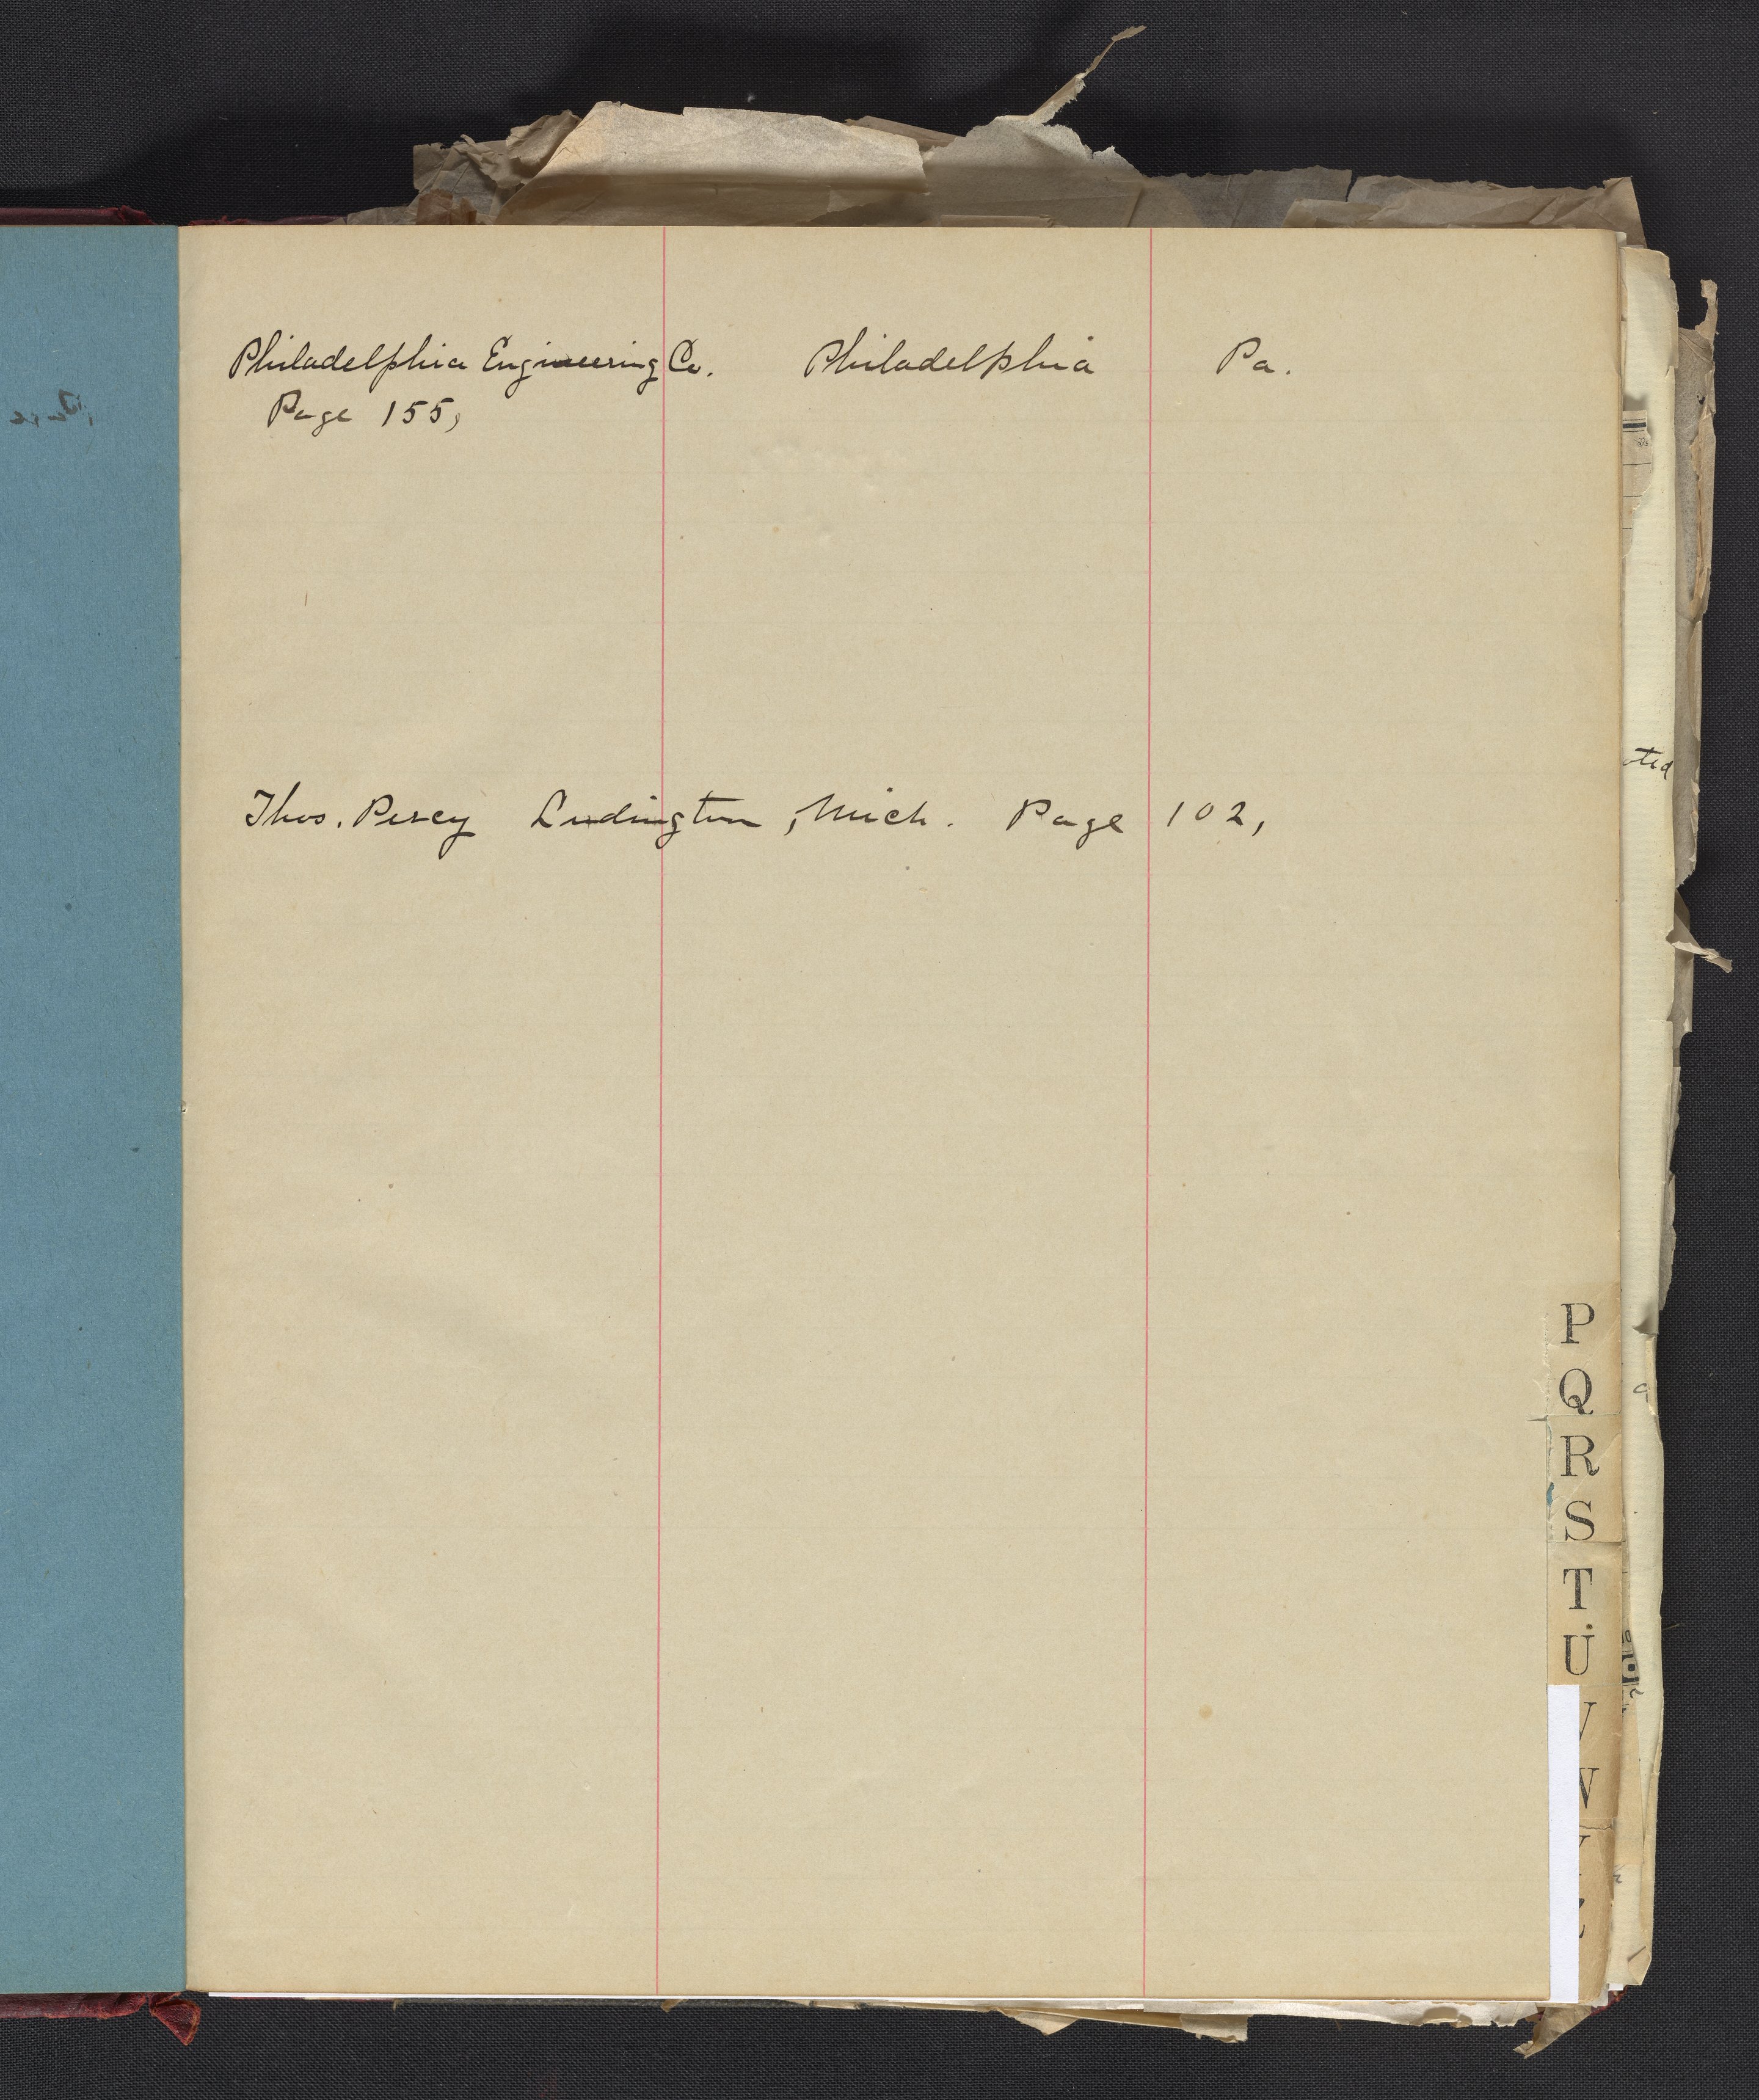 Philadelphia Engineering Co. Philadelphia Pa.
Page 155,
Thos. Percy Ludington, Mich. Page 102,
P
Q
R
S
T
U
V
W
Y
Z